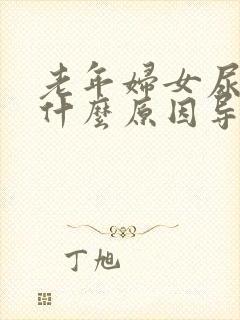 老年婦女尿
什麼原因导
丁旭